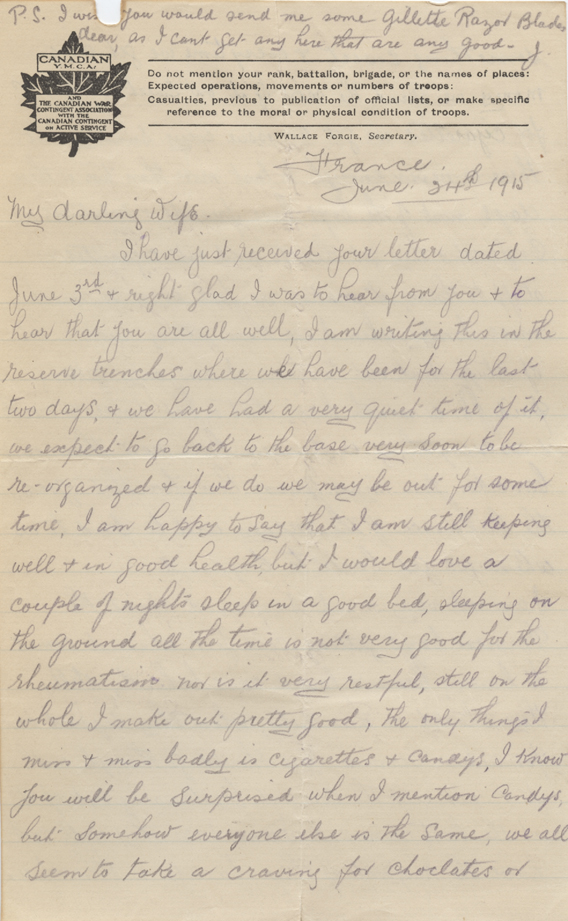 P.S. I wish you would send me some Gillette Razor Blades
dear, as I cant get any here that are any good - J.
CANADIAN
Y.M.C.A.
AND
THE CANADIAN WAR
CONTINGENT ASSOCIATION
WITH THE
CANADIAN CONTINGENT
ON ACTIVE SERVICE
Do not mention your rank, battalion, brigade, or the names of places:
Expected operations, movements or numbers of troops:
Casualties, previous to publication of official lists, or make specific
reference to the moral or physical condition of troops.
WALLACE FORGIE, Secretary.
France.
June. 24th 1915
My darling Wife.
I have just received your letter dated
June 3rd & right glad I was to hear from you & to
hear that you are all well, I am writing this in the
reserve trenches where we have been for the last
two days, & we have had a very quiet time of it,
we expect to go back to the base very soon to be
re-organized & if we do we may be out for some
time, I am happy to say that I am still keeping
well & in good health, but I would love a
couple of nights sleep in a good bed, sleeping on
the ground all the time is not very good for the
rheumatism nor is it very restful, still on the
whole I make out pretty good, the only things I
miss & miss badly is cigarettes & candys, I know
you will be surprised when I mention candys,
but somehow everyone else is the same, we all
seem to take a craving for choclates or